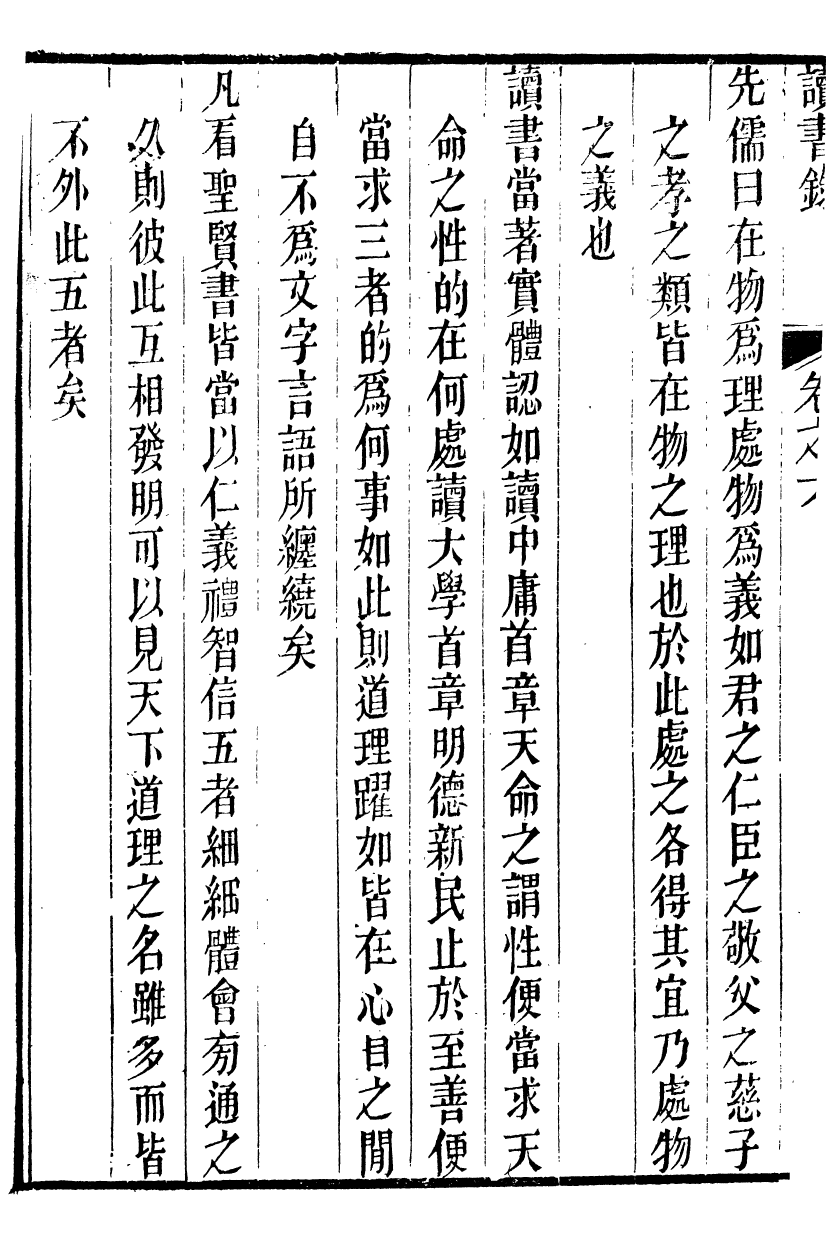 讀書錄
卷之六
先儒曰在物爲理處物爲義如君之仁臣之敬父之慈子
之孝之類皆在物之理也於此處之各得其宜乃處物
之義也
讀書當著實體認如讀中庸首章天命之謂性便當求天
命之性的在何處讀大學首章明德新民止於至善便
當求三者的爲何事如此則道理躍如皆在心目之間
自不爲文字言語所纏繞矣
凡看聖賢書皆當以仁義禮智信五者細細體會旁通之
久則彼此互相發明可以見天下道理之名雖多而皆
不外此五者矣